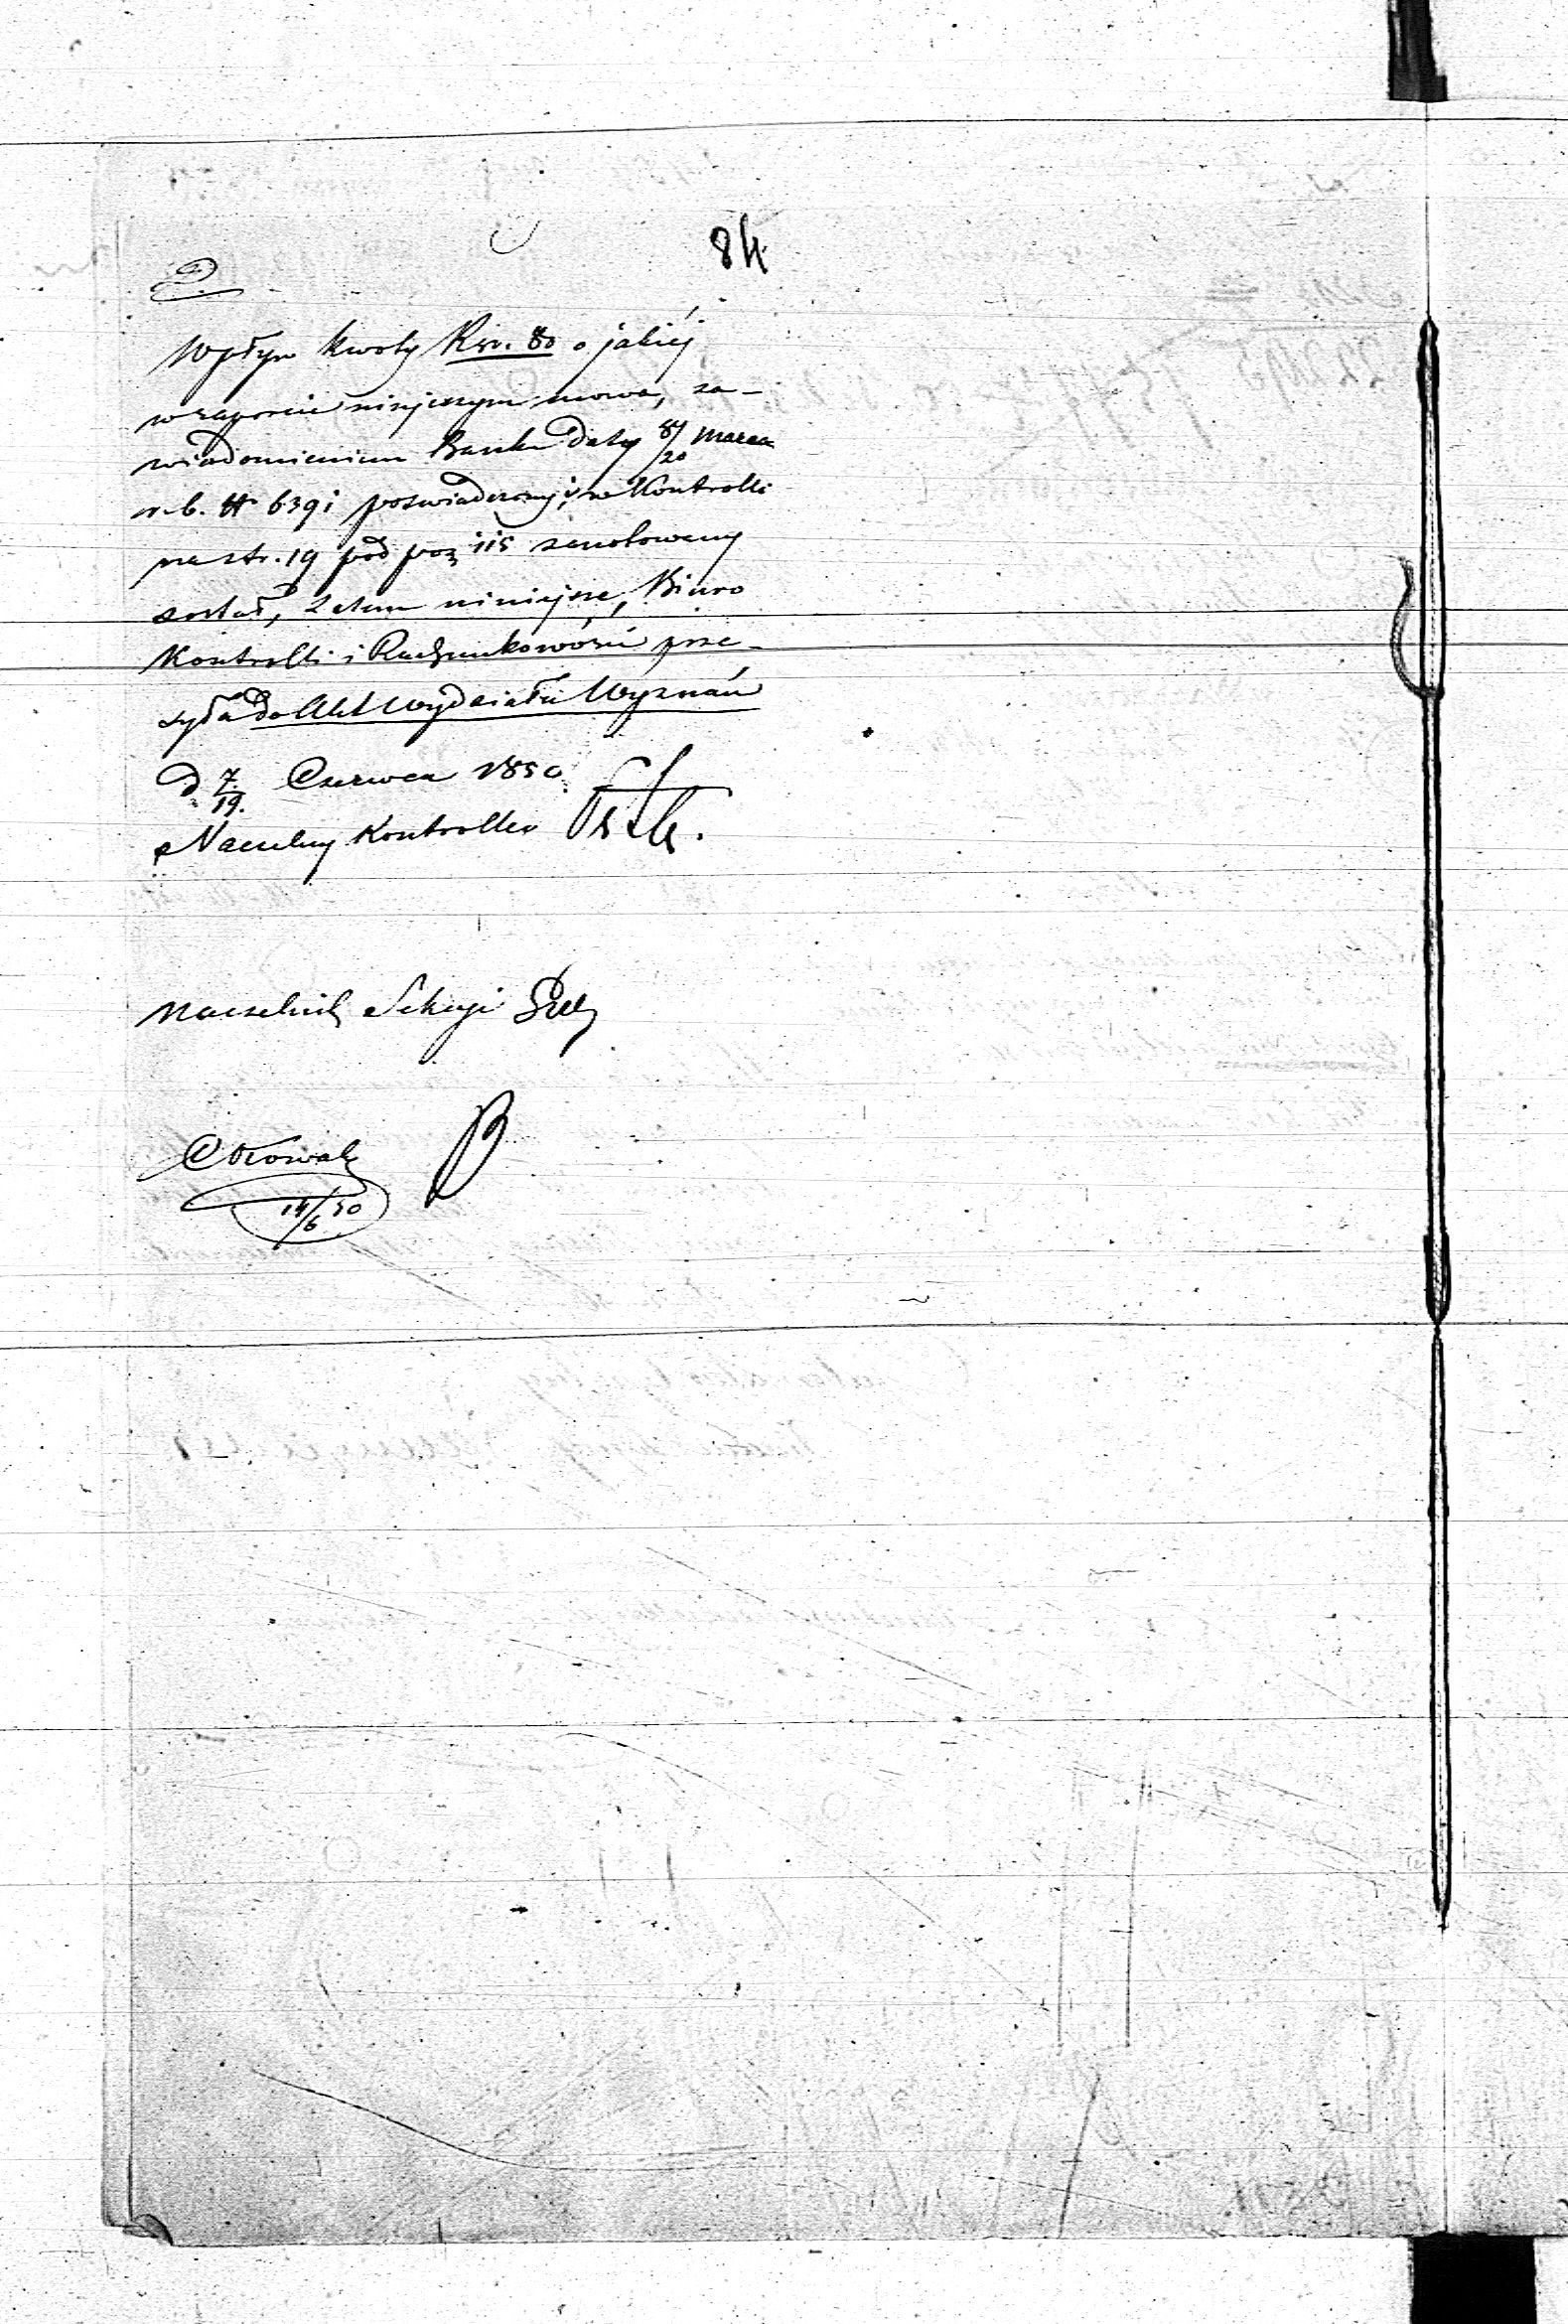 84
Wpływ kwoty Rsr. 80 o jakiéj
w raporcie ninjeszym mowa, za-
wiadomieniem Banku daty 8/20 Marca
r. b. N 6391 poswiadczony i w Kontrolli
na str. 19 pod poz 115 zanotowany
został, zatem niniejsze, Biuro
Kontrolli i Rachunkowości prze-
syła do Akt Wydziału Wyznań
d 7/19. Czerwca 1850
Naczelny Kontroller
Naczelnik Sekcyi
14/6 50